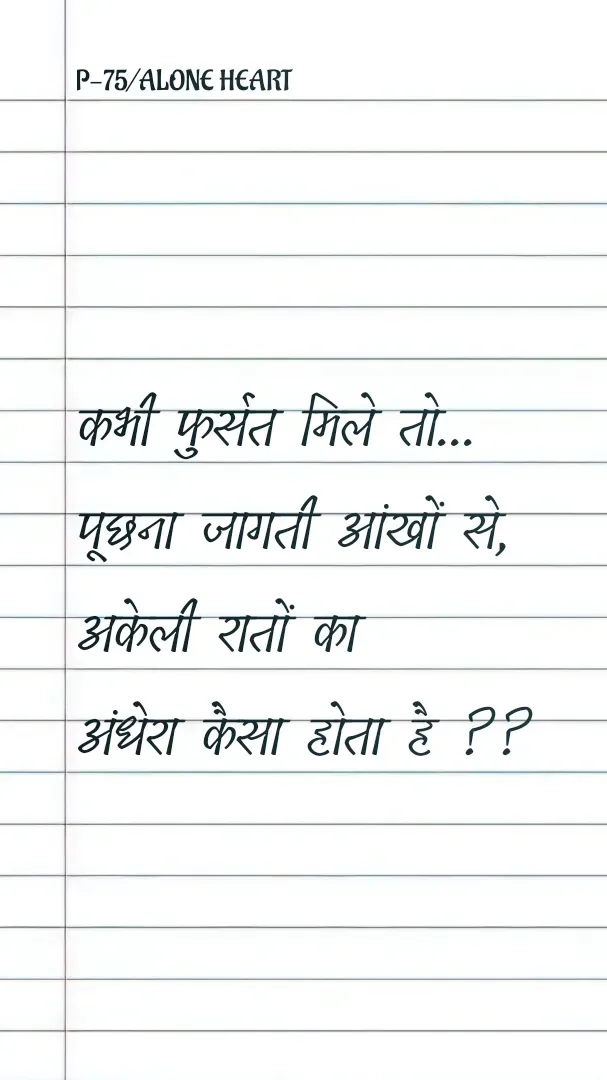 P-75/ALONE HEART
कभी फुर्सत मिले तो...
पूछना जागती आंखों से,
अकेली रातों का
अंधेरा कैसा होता है ??